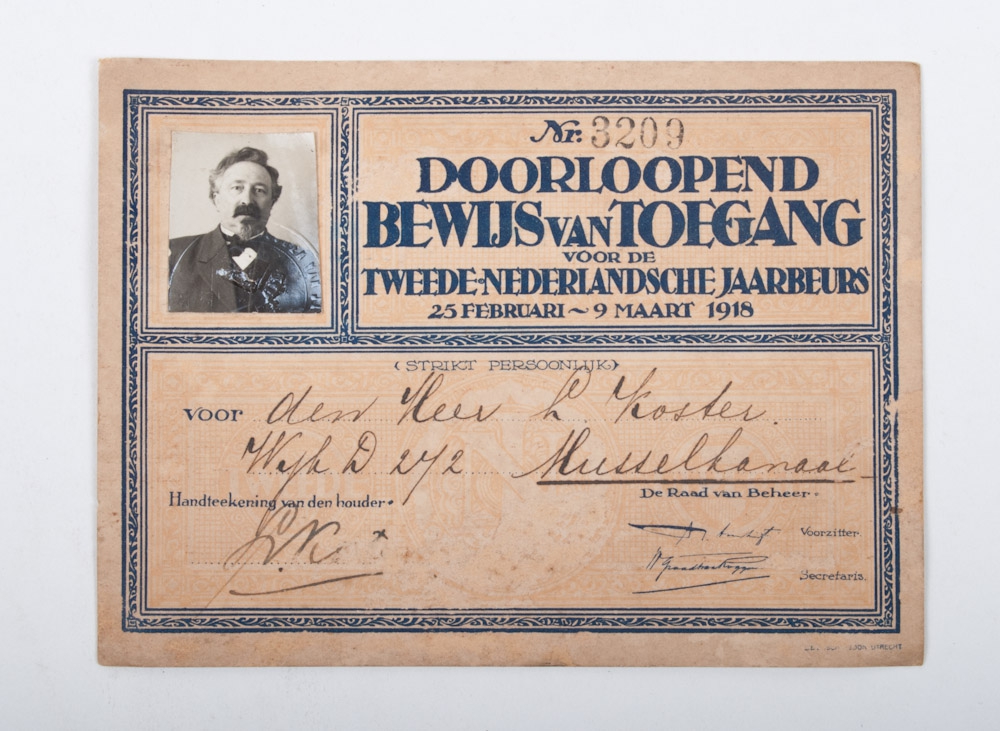 Nr. 3209
DOORLOOPEND
BEWIJS VAN TOEGANG
VOOR DE
TWEEDE NEDERLANDSCHE JAARBEURS
25 FEBRUARI ~ 9 MAART 1918
(STRIKT PERSOONLIJK)
VOOR den Heer L. Koster.
Wijk D 272 Musselkanaal
Handteekening van den houder.
De Raad van Beheer.
Voorzitter.
Secretaris.
UTRECHT